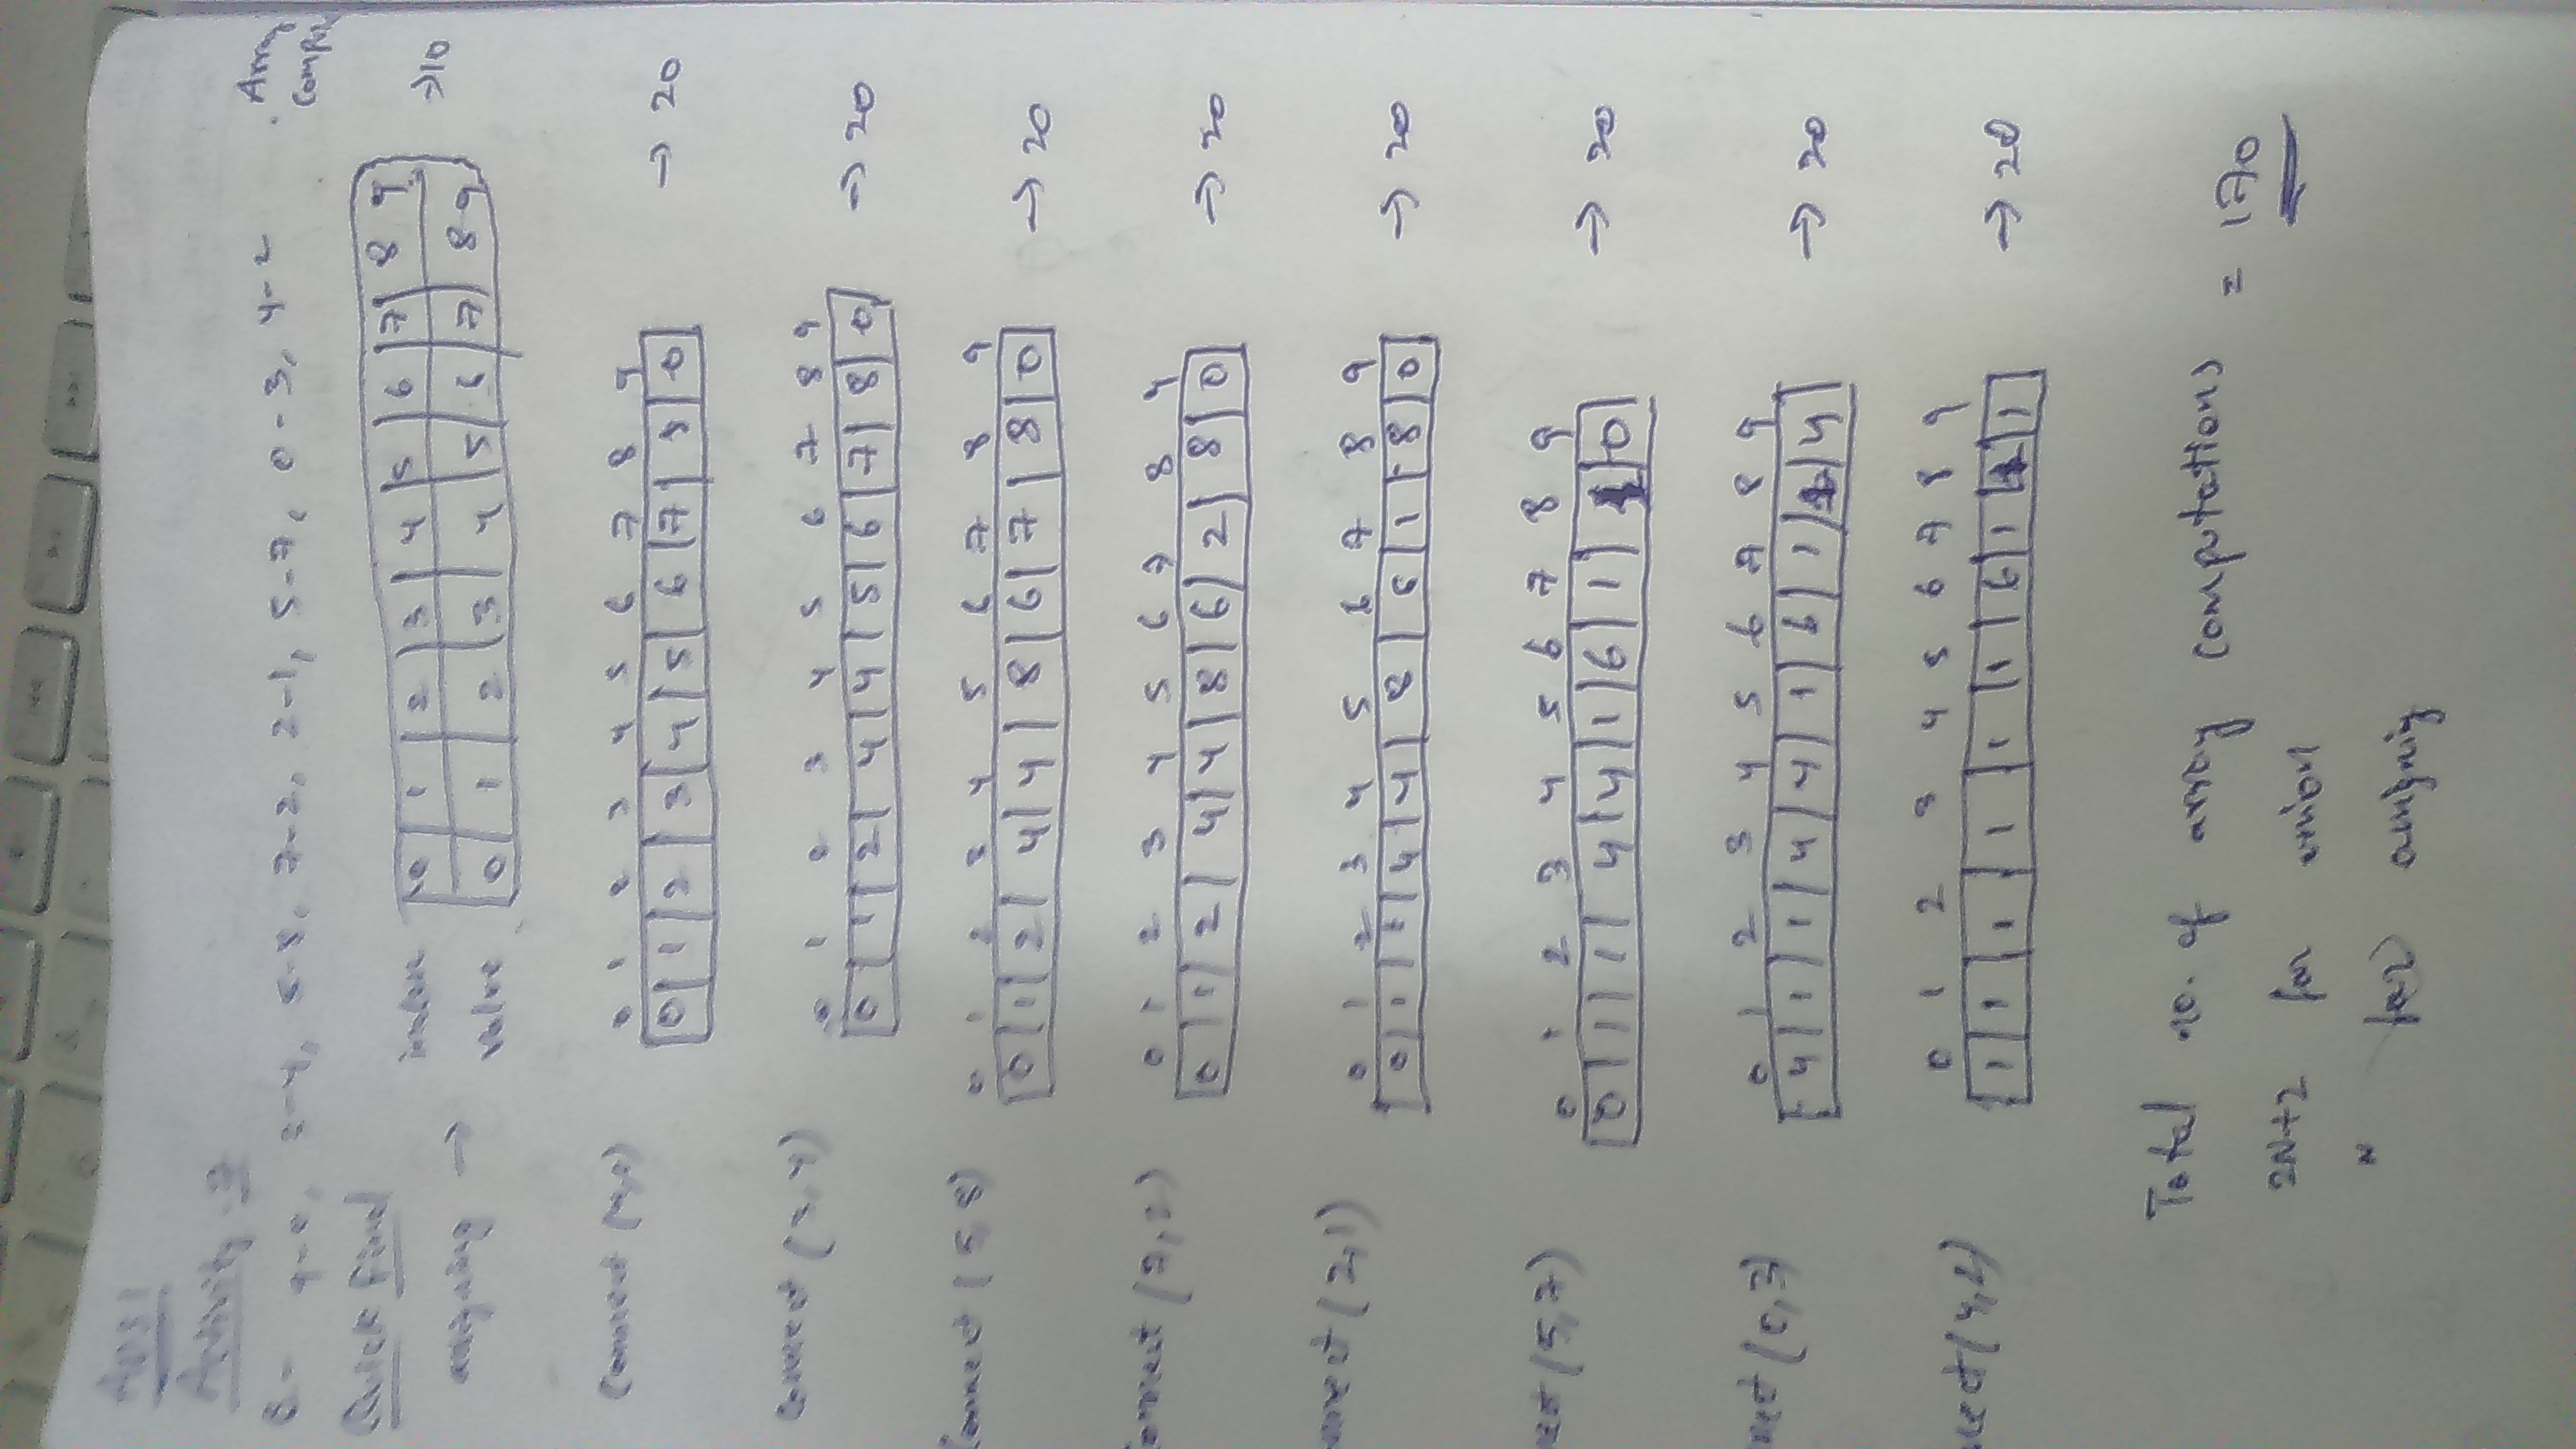 ADS1
Activity-7
Q- 9-0, 3-4, 5-8, 7-2, 2-1, 5-7, 0-3, 4-2
Array
Quick Find
index 0 1 2 3 4 5 6 7 8 9
assigning → →10
value 0 1 2 3 4 5 6 7 8 9
Connect (9,0) 0 1 2 3 4 5 6 7 8 9
0 1 2 3 4 5 6 7 8 0 → 20
Connect (3,4) 0 1 2 3 4 5 6 7 8 9
0 1 2 4 4 5 6 7 8 0 → 20
Connect (5,8) 0 1 2 3 4 5 6 7 8 9
0 1 2 4 4 8 6 7 8 0 → 20
onnect (7,2) 0 1 2 3 4 5 6 7 8 9
0 1 2 4 4 8 6 2 8 0 → 20
nnect (2,1) 0 1 2 3 4 5 6 7 8 9
0 1 1 4 4 8 6 1 8 0 → 20
nect (5,7) 0 1 2 3 4 5 6 7 8 9
0 1 1 4 4 1 6 1 1 0 → 20
nect (0,3) 0 1 2 3 4 5 6 7 8 9
4 1 1 4 4 1 6 1 1 4 → 20
nect (4,2) 0 1 2 3 4 5 6 7 8 9
1 1 1 1 1 1 6 1 1 1 → 20
Total no. of array computations = 170
2N+2 for union
N for assignig